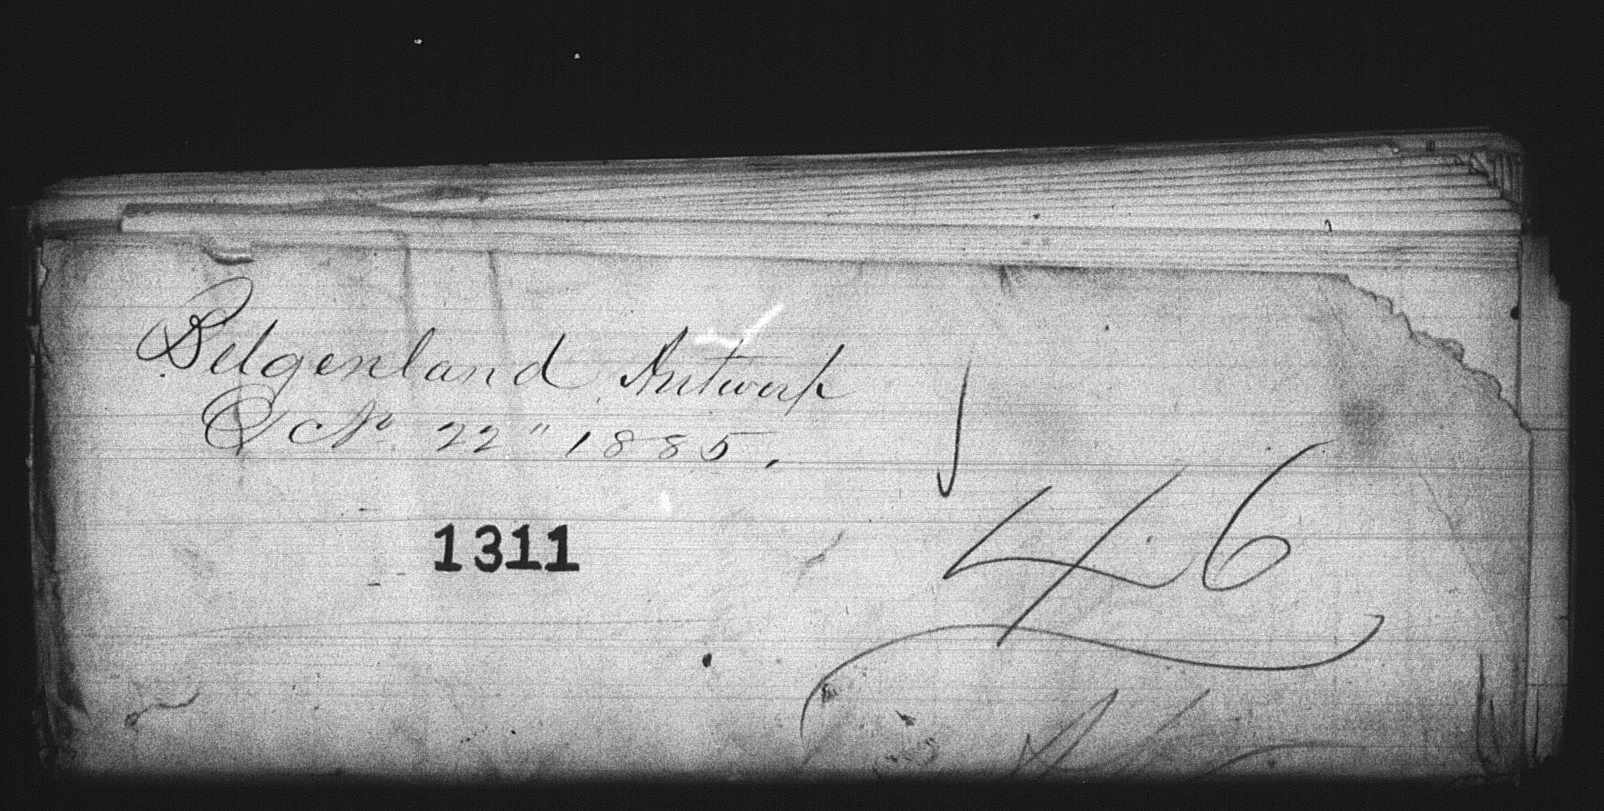 Belgenland Antwerp
Oct 22" 1885.
1311
46